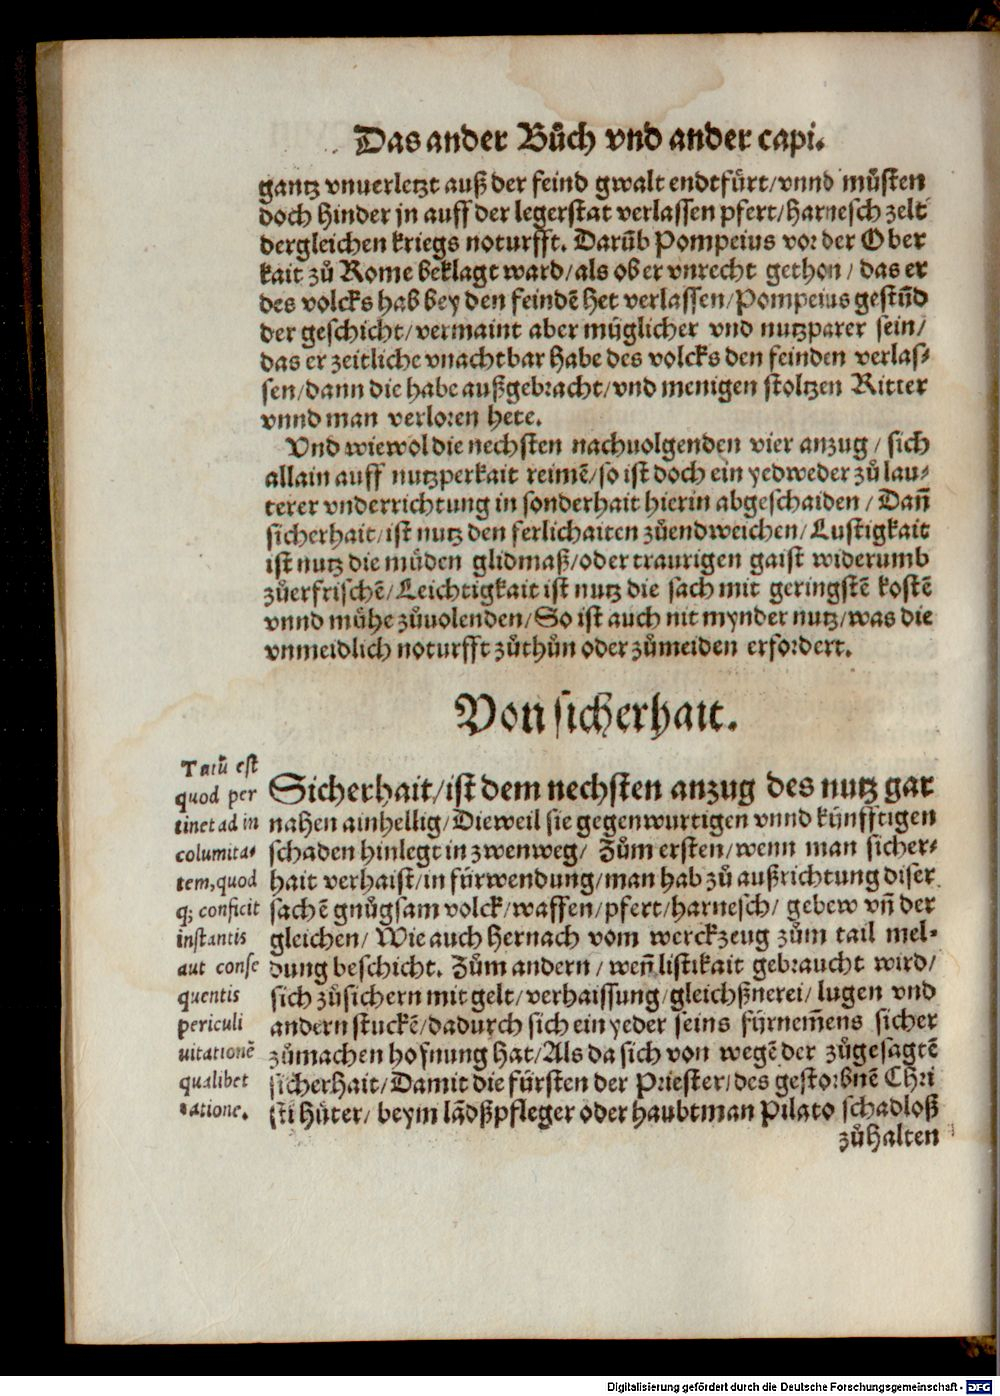 Das ander Bůch vnd ander capi.
gantz vnuerletzt auß der feind gwalt endtfürt/vnnd můsten
doch hinder jn auff der legerstat verlassen pfert/harnesch zelt
dergleichen kriegs noturfft. Darūb Pompeius vor der Ober
kait zů Rome beklagt ward/als ob er vnrecht gethon/ das er
des volcks hab bey den feindē het verlassen/Pompeius gestūd
der geschicht/vermaint aber müglicher vnd nutzparer sein/
das er zeitliche vnachtbar habe des volcks den feinden verlas-
sen/dann die habe außgebracht/vnd menigen stoltzen Ritter
vnnd man verloren hete.
Vnd wiewol die nechsten nachuolgenden vier anzug/ sich
allain auff nutzperkait reimē/so ist doch ein yedweder zů lau-
terer vnderrichtung in sonderhait hierin abgeschaiden/ Dañ
sicherhait/ist nutz den ferlichaiten zůendweichen/Lustigkait
ist nutz die můden glidmaß/oder traurigen gaist widerumb
zůerfrischē/Leichtigkait ist nutz die sach mit geringstē kostē
vnnd mühe zůuolenden/So ist auch nit mynder nutz/was die
vnmeidlich noturfft zůthůn oder zůmeiden erfordert.
Von sicherhait.
Tutū est
quod per
tinet ad in
columita-
tem,quod
q; conficit
instantis
aut conse
quentis
periculi
uitationē
qualibet
ratione.
Sicherhait/ist dem nechsten anzug des nutz gar
nahen ainhellig/Dieweil sie gegenwurtigen vnnd künfftigen
schaden hinlegt in zwenweg/ Zům ersten/wenn man sicher-
hait verhaist/in fürwendung/man hab zů außrichtung diser
sachē gnůgsam volck/waffen/pfert/harnesch/ gebew vñ der
gleichen/ Wie auch hernach vom werckzeug zům tail mel-
dung beschicht. Zům andern/ weñ listikait gebraucht wird/
sich zůsichern mit gelt/verhaissung/gleichßnerei/lugen vnd
andern stuckē/dadurch sich ein yeder seins fürnem̄ens sicher
zůmachen hofnung hat/Als da sich von wegē der zůgesagtē
sicherhait/Damit die fürsten der Priester/des gestorbnē Chri
sti hüter/ beym lādßpfleger oder haubtman Pilato schadloß
zůhalten
Digitalisierung gefördert durch die Deutsche Forschungsgemeinschaft - DFG